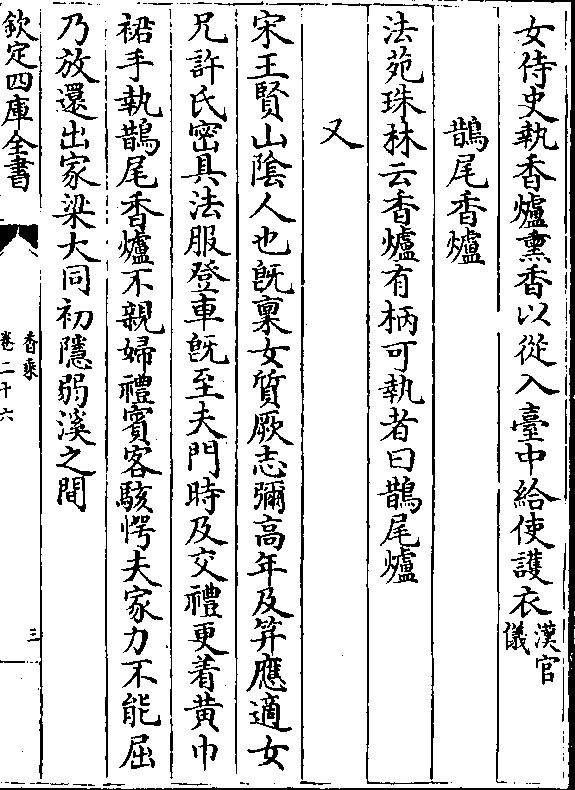 女侍史執香爐熏香以從入臺中給使護衣漢官儀
鵲尾香爐
法苑珠林云香爐有柄可執者曰鵲尾爐
又
宋王賢山陰人也既稟女質厥志彌高年及笄應適女
兄許氏密具法服登車既至夫門時及交禮更着黃巾
裙手執鵲尾香爐不親婦禮賓客駭愕夫家力不能屈
乃放還出家梁大同初隱弱溪之間
欽定四庫全書
香乘
卷二十六
三